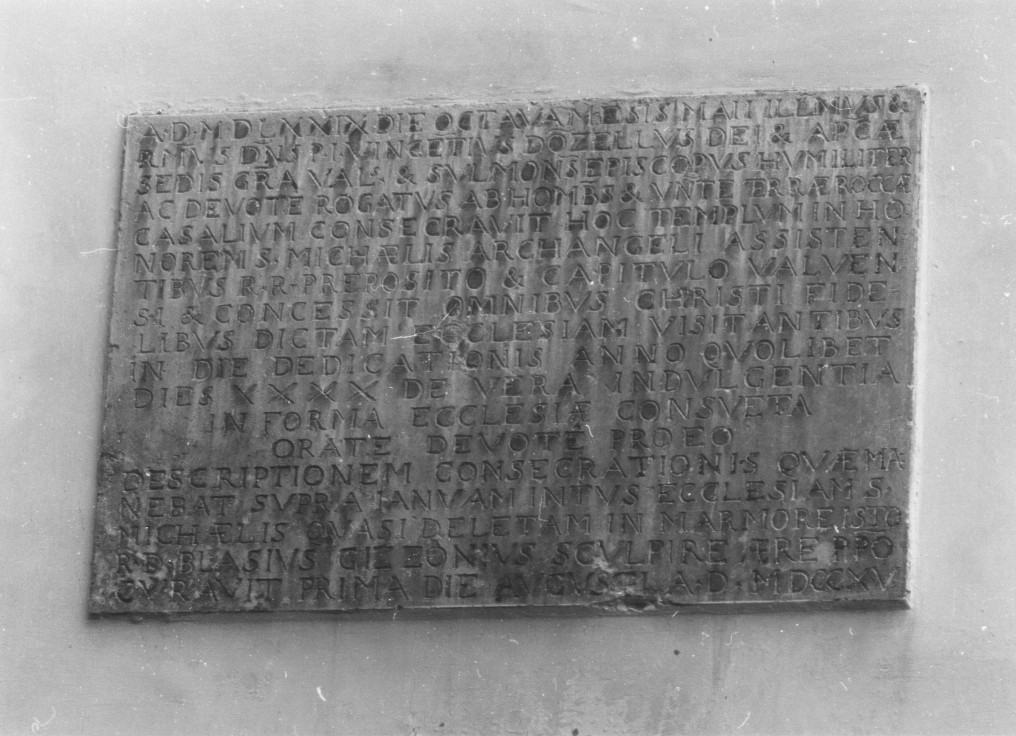 A·D·MDLXXIX DIE OCTAVA MESIS MAII ILLMVS &
RMVS DNS P VINCETIVS DOZELLVS DEI & APCÆ
SEDIS GRA VAL· & SVLMONS EPISCOPVS HVMILITER
AC DEVOTE ROGATVS AB HOMBS & VNTE TERRÆ ROCCÆ
CASALIVM CONSECRAVIT HOC TEMPLVM IN HO·
NOREM S· MICHÆLIS ARCHANGELI ASSISTEN
TIBVS R·R·PREPOSITO & CAPITVLO VALVEN
SI & CONCESSIT OMNIBVS CHRISTI FIDE·
LIBVS DICTAM ECCLESIAM VISITANTIBVS
IN DIE DEDICATIONIS ANNO QVOLIBET
DIES XXXX DE VERA INDVLGENTIA
IN FORMA ECCLESIÆ CONSVETA
ORATE DEVOTE PRO EO
DESCRIPTIONEM CONSECRATIONIS QVÆ MA
NEBAT SVPRA IANVAM INTVS ECCLESIAM S·
MICHÆLIS QVASI DELETAM IN MARMORE ISTO
R·D·BLASIVS SCVLPIRE ÆRE PPO
CVRAVIT PRIMA DIE AVGVSTI A·D·MDCCXV